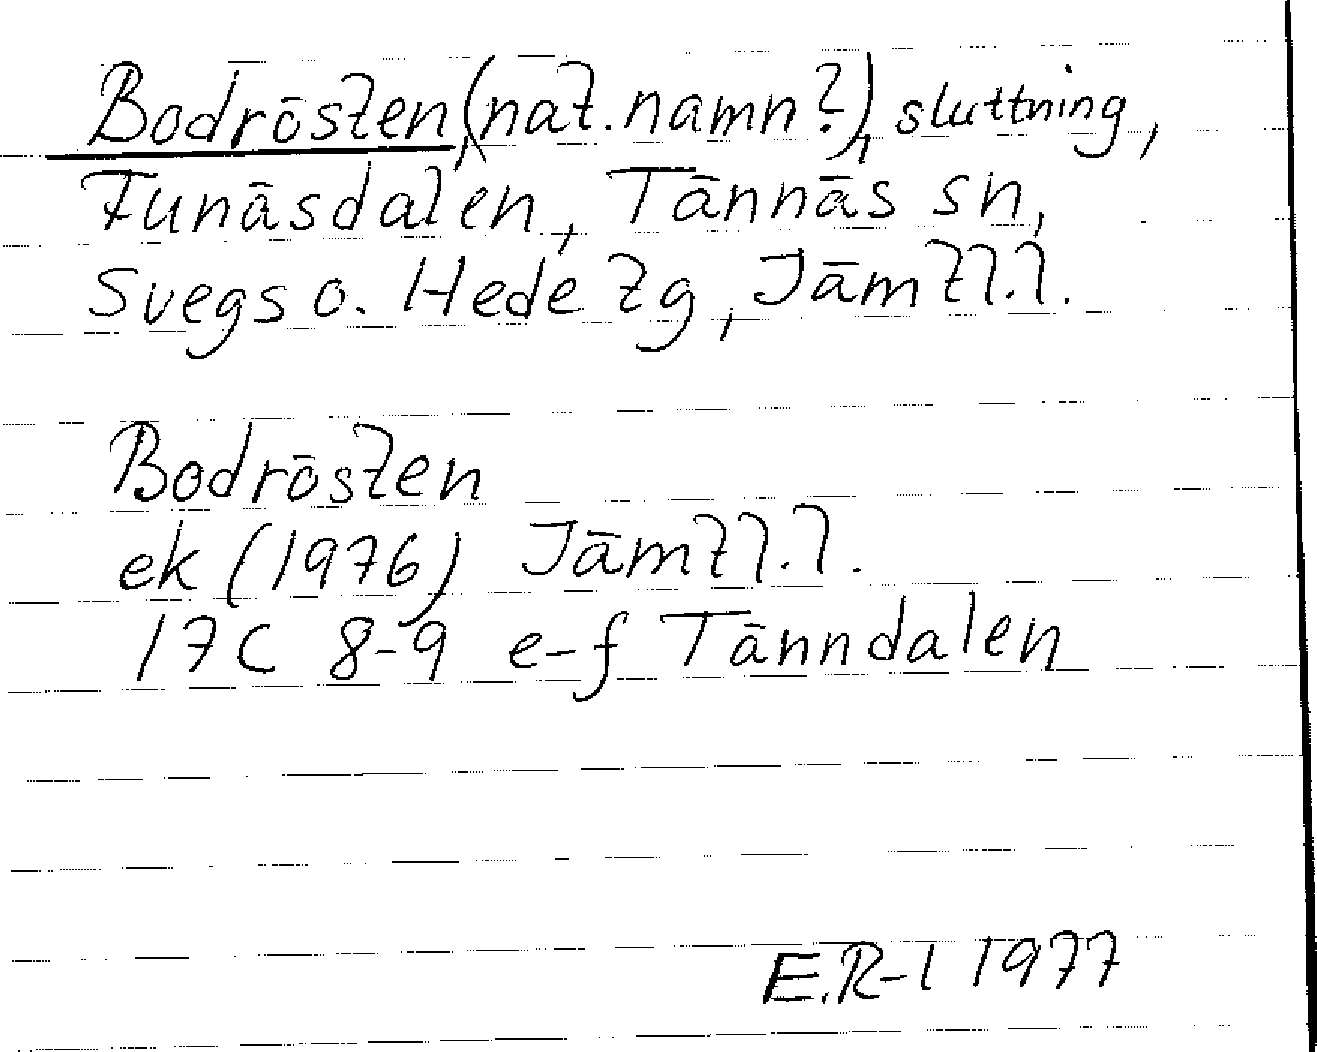 Bodrösten, (nat. namn?), sluttning,
Funäsdalen, Tännäs sn,
Svegs o. Hede tg, Jämtl.l.
Bodrösten
ek (1976) Jämtl.l.
17C 8-9 e-f Tänndalen
E.R-l 1977